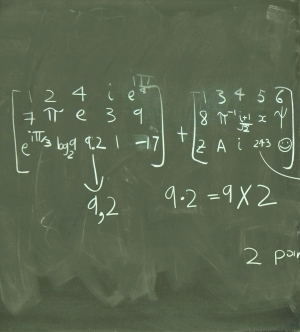 1 2 4 i e^{iπ/4}
7 π e 3 9
e^{iπ/3} log₂9 9.2 1 -17
+
1 3 4 5 6
8 π⁻¹ (i+1)/√2 x ψ
2 A i 243 ☺
9,2
9.2 = 9 X 2
2